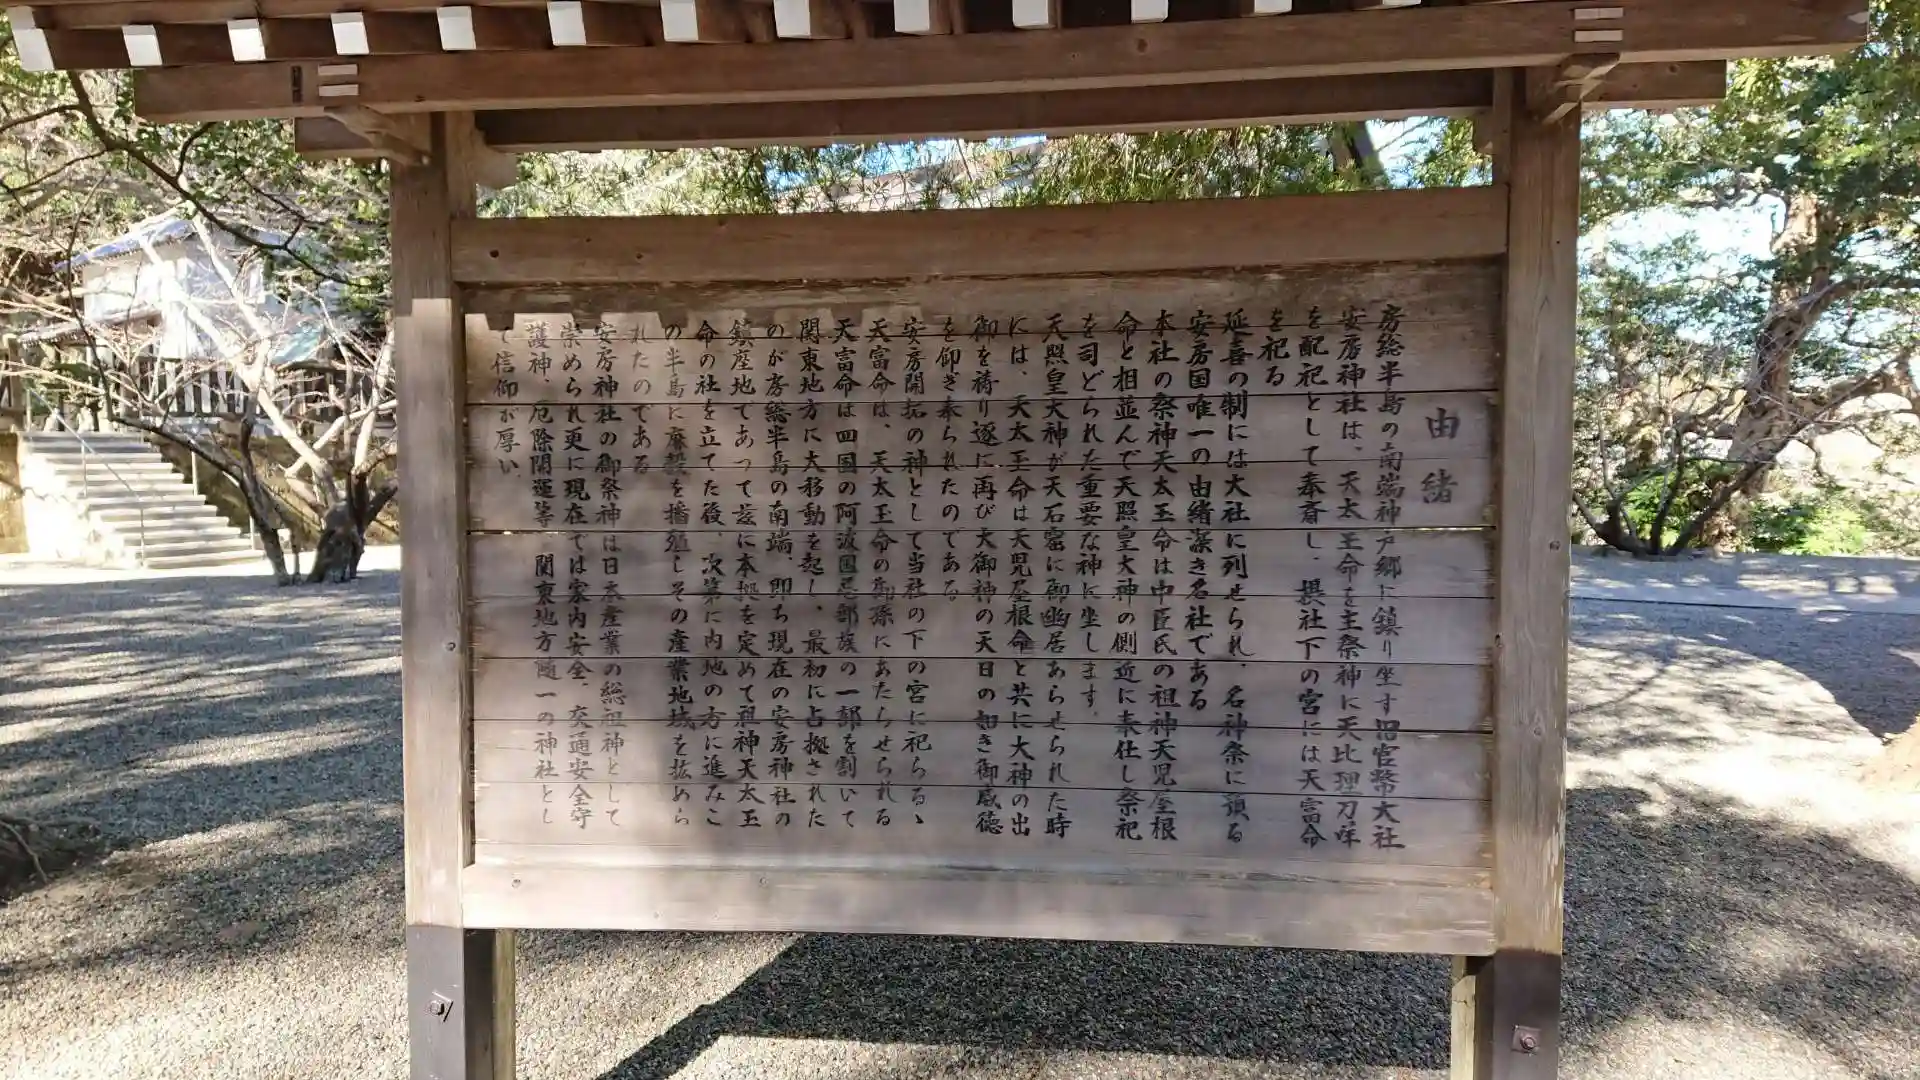 由緒
房総半島の南端神戸郷に鎮り坐す旧官幣大社
安房神社は、天太玉命を主祭神に天比理刀咩
を配祀として奉斎し、摂社下の宮には天富命
を祀る
延喜の制には大社に列せられ、名神祭に預る
安房国唯一の由緒深き名社である
本社の祭神天太玉命は中臣氏の祖神天児屋根
命と相並んで天照皇大神の側近に奉仕し祭祀
を司どられた重要な神に坐します。
天照皇大神が天石窟に御幽居あらせられた時
には、天太玉命は天児屋根命と共に大神の出
御を祷り遂に再び大御神の天日の如き御威徳
を仰ぎ奉られたのである
安房開拓の神として当社の下の宮に祀らるゝ
天富命は、天太玉命の御孫にあたらせられる
天富命は四国の阿波国忌部族の一部を割いて
関東地方に大移動を起し、最初に占拠された
のが房総半島の南端、即ち現在の安房神社の
鎮座地であって茲に本拠を定めて祖神天太玉
命の社を立てた後、次第に内地の方に進みこ
の半島に麻穀を播殖しその産業地域を拡めら
れたのである
安房神社の御祭神は日本産業の総祖神として
崇められ更に現在では家内安全、交通安全守
護神、厄除開運等、関東地方随一の神社とし
て信仰が厚い